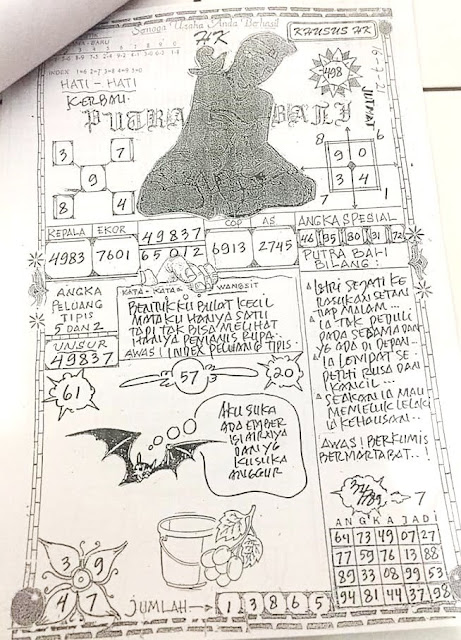 Semoga Usaha Anda Berhasil
HK
KHUSUS HK
INDEX 1=6 2=7 3=8 4=9 5=0
498
HATI - HATI
KERBAU
JUM'AT
PUTRA BALI
3 7
9
8 4
8 6
9 0
3 4
7 1
KEPALA EKOR 49837 COP AS
4983 7601 65012 6913 2745
ANGKA SPESIAL
46 35 80 31 72
PUTRA BALI
BILANG :
ANGKA
PELUANG
TIPIS
5 DAN 2
UNSUR
49837
KATA - KATA WANGSIT
BENTUK KU BULAT KECIL
MATA KU HANYA SATU
TAPI TAK BISA MELIHAT
HANYA PEMANIS RUPA.
AWAS! INDEX PELUANG TIPIS.
ISTRI SEJATI KE
RASUKAN SETAN
TIAP MALAM...
IA TAK PEDULI
PADA SEBAMA DAN
YG ADA DI DEPAN...
IA LOMPAT SE-
PERTI RUSA DAN
KANCIL...
SEAKAN IA MAU
MEMELUK LELAKI
IA KEHAUSAN...
AWAS! BERKUMIS
BERMARTABAT..!
57
20
61
AKU SUKA
ADA EMBER
ISI AIRNYA
DAN YG
KU SUKA
ANGGUR
7
ANGKA JADI
64 73 49 07 27
77 59 76 13 88
89 33 08 99 53
94 81 44 37 98
3 9
4 7
JUMLAH → 1 3 8 6 5